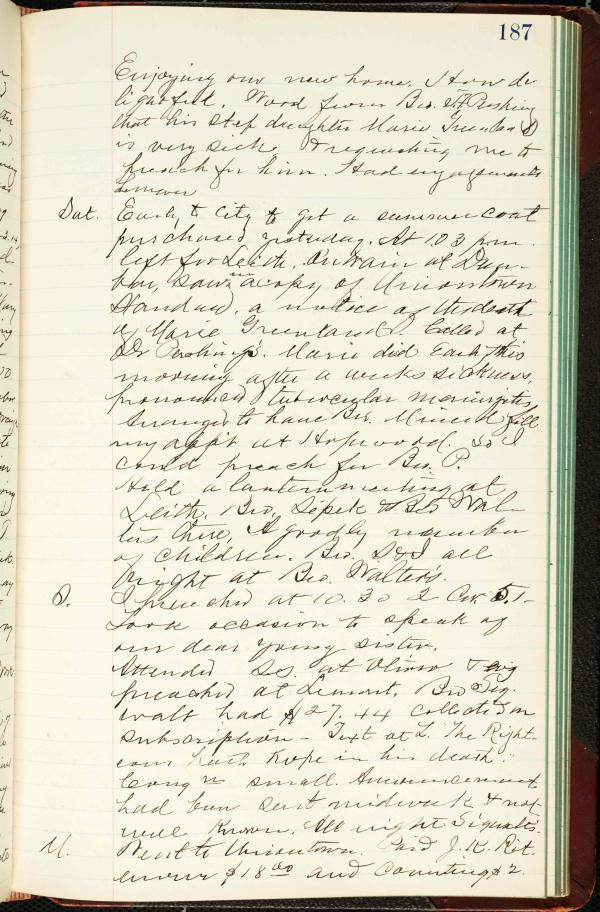 187
Enjoying our new home. How de
lightful. Word from Bro. Pershing
that his step daughter Marie Greenland
is very sick & requesting me to
preach for him. Had engagements
however
Sat. Early to city to get a summer coat
purchased yesterday. At 1.03 p.m.
left for Leith. On train at Dun-
bar, saw in a copy of Uniontown
Standard, a notice of the death
of Marie Greenland. Called at
Pershing's. Marie died Early this
morning after a weeks sickness,
pronounced tubercular meningitis,
Arranged to have Bro. fill
my appt at Hopewood. so I
could preach for Bro. P.
Held a lantern meeting at
Leith. Bro. Sepek & Bro Wal-
ters there. A goodly number
of children. Bro. S & I all
night at Bro. Walter's.
S. I preached at 10.30 2 Cor 5.1-
Took occasion to speak of
our dear young sister.
Attended S.S. at &
preached at Lemont. Bro Sig
walt had $27.44 collected on
subscription - Text at L. The Right-
eous hath hope in his death.
Congn small. Announcement
had been sent midweek & not
well known. All night Sigwalts.
M. Went to Uniontown. Paid J. K. Rit
enour $18 00 and counting $2.